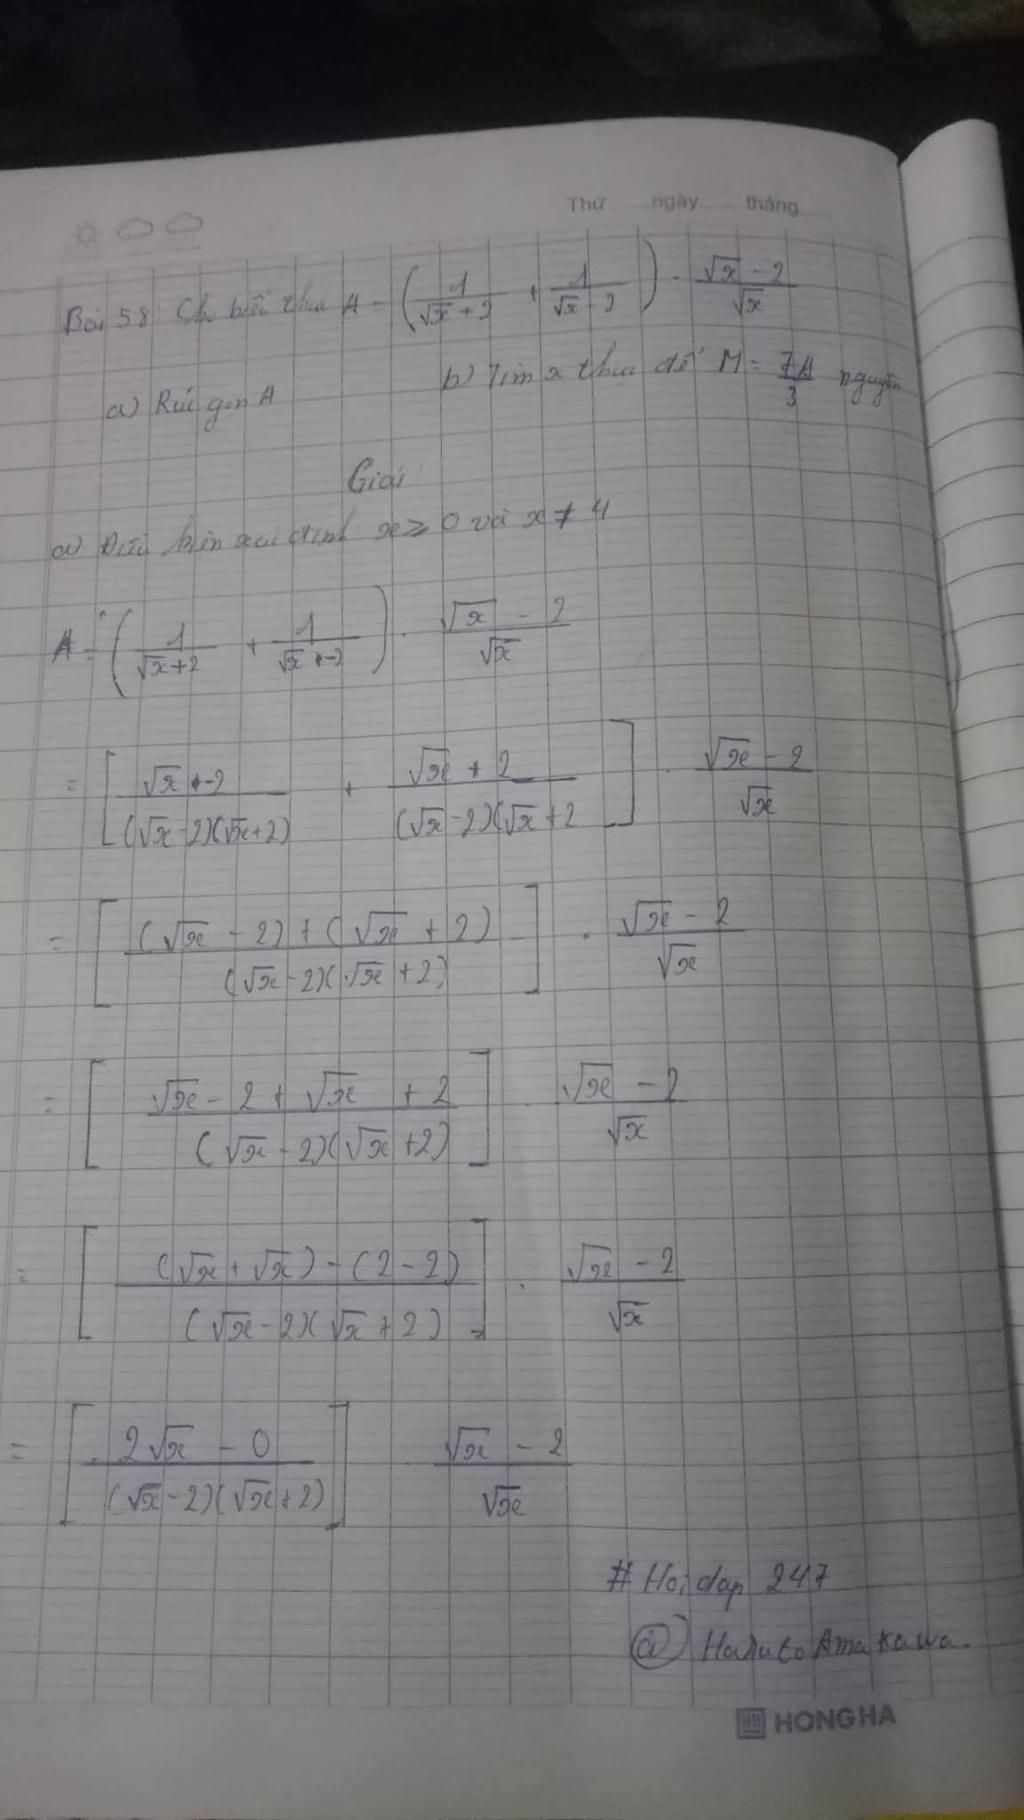 Thứ ngày tháng
Bài 58 Ch biể thưc A = (1/(√x + 2) + 1/(√x - 2)) · (√x - 2)/√x
a) Rút gọn A b) Tìm x thực để M = 7A/3 nguyên
Giải
a) Điều kiện xác định x ≥ 0 và x ≠ 4
A = (1/(√x + 2) + 1/(√x - 2)) · (√x - 2)/√x
= [(√x - 2)/((√x - 2)(√x + 2)) + (√x + 2)/((√x - 2)(√x + 2)] · (√x - 2)/√x
= [((√x - 2) + (√x + 2))/((√x - 2)(√x + 2))] · (√x - 2)/√x
= [(√x - 2 + √x + 2)/((√x - 2)(√x + 2))] · (√x - 2)/√x
= [((√x + √x) - (2 - 2))/((√x - 2)(√x + 2))] · (√x - 2)/√x
= [(2√x - 0)/((√x - 2)(√x + 2))] (√x - 2)/√x
# Hoidap 247
@ HarutoAmakawa.
HONG HA